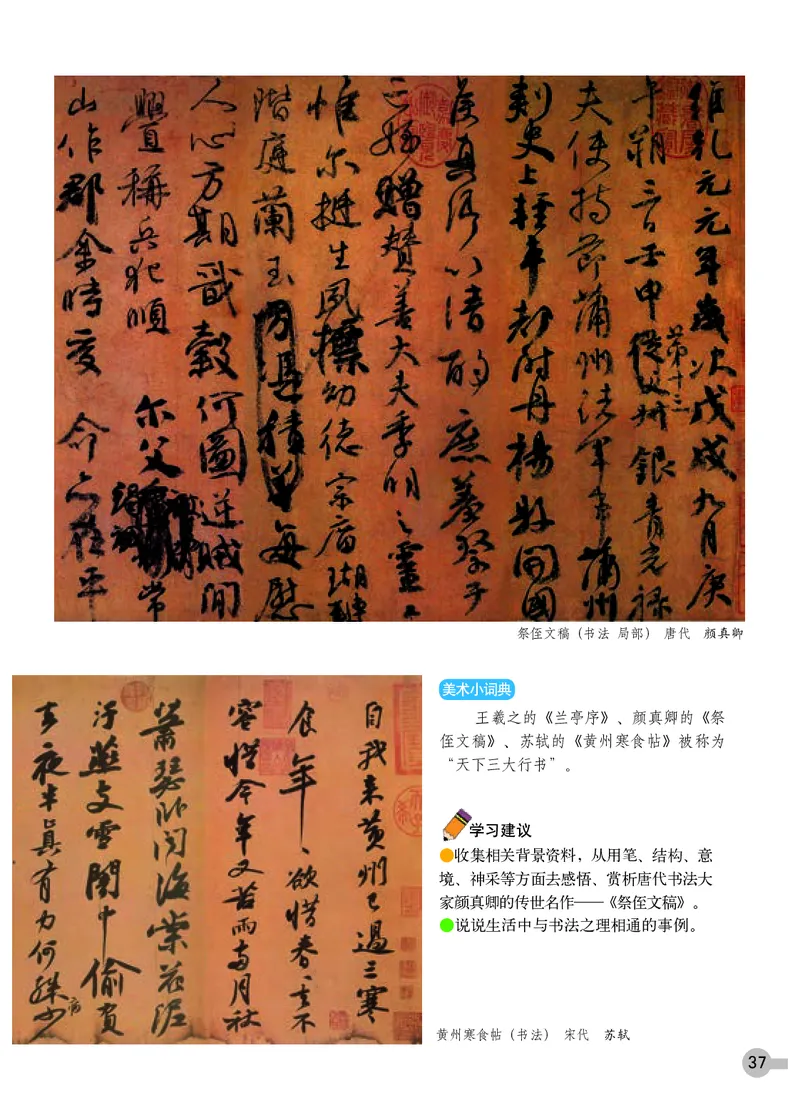 維乾元元年歲次戊戌九月庚
午朔三日壬申第十三從父銀青光祿
夫使持節蒲州諸軍事蒲州
刺史上輕車都尉丹楊縣開國
侯真卿以清酌庶羞祭于
亡姪贈贊善大夫季明之靈曰
惟爾挺生夙標幼德宗廟瑚璉
階庭蘭玉每慰
人心方期戩穀何圖逆賊間
釁稱兵犯順爾父常
山作郡余時受命亦在平
祭侄文稿（书法 局部） 唐代 颜真卿
自我來黃州已過三寒
食年〻欲惜春〻去不
容惜今年又苦雨兩月秋
蕭瑟臥聞海棠花泥
汙燕支雪闇中偷負
去夜半真有力何殊少病
美术小词典
王羲之的《兰亭序》、颜真卿的《祭
侄文稿》、苏轼的《黄州寒食帖》被称为
“天下三大行书”。
学习建议
●收集相关背景资料，从用笔、结构、意
境、神采等方面去感悟、赏析唐代书法大
家颜真卿的传世名作——《祭侄文稿》。
●说说生活中与书法之理相通的事例。
黄州寒食帖（书法） 宋代 苏轼
37